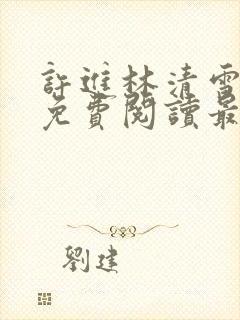 許進林清雪
免費閱讀最
劉建